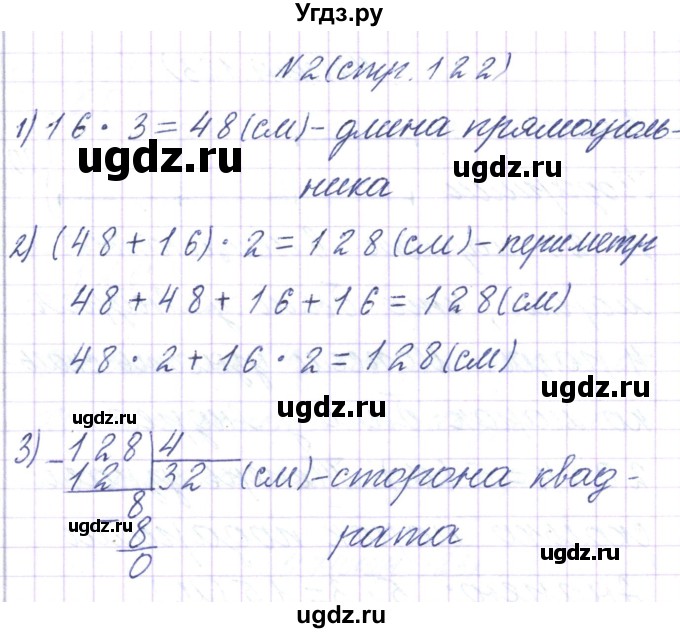 Угдз.ру
N2(стр. 122)
1) 16 · 3 = 48 (см) - длина прямоуголь-
ugdz.ru ugdz.ru
ника
2) (48 + 16) · 2 = 128 (см) - периметр
48 + 48 + 16 + 16 = 128 (см)
48 · 2 + 16 · 2 = 128 (см)
ugdz.ru ugdz.ru
ugdz.ru
3) - 128 | 4
12 | 32 (см) - сторона квад-
ugdz.ru
8 рата
- 8
ugdz.ru
0
ugdz.ru ugdz.ru